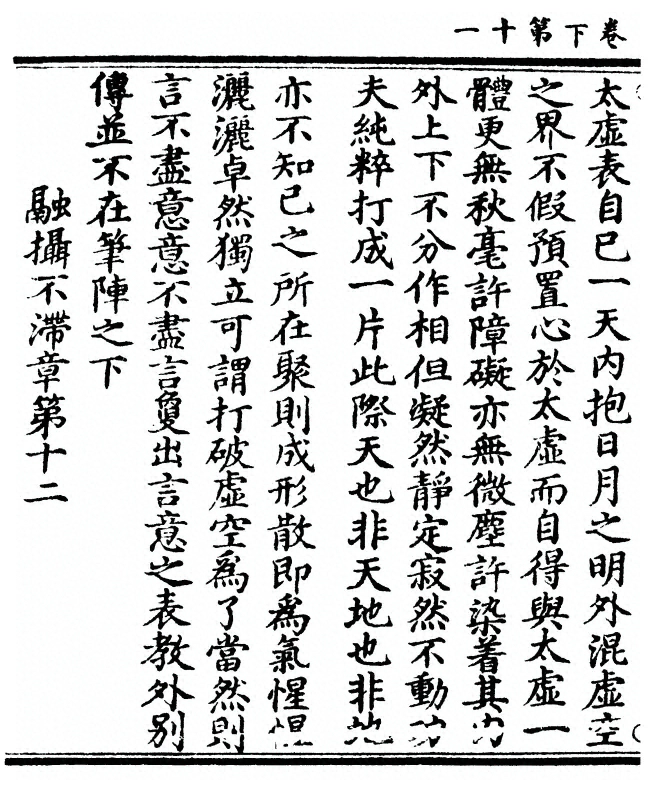 卷下第十一
太虛表自已一天内抱日月之明外混虛空
之界不假預置心於太虛而自得與太虛一
體更無秋毫許障礙亦無微塵許染着其内
外上下不分作相但凝然靜定寂然不動功
夫純粹打成一片此際天也非天地也非地
亦不知已之所在聚則成形散即爲氣惺惺
灑灑卓然獨立可謂打破虛空爲了當然則
言不盡意意不盡言敻出言意之表教外别
傳並不在筆陣之下
融攝不滯章第十二